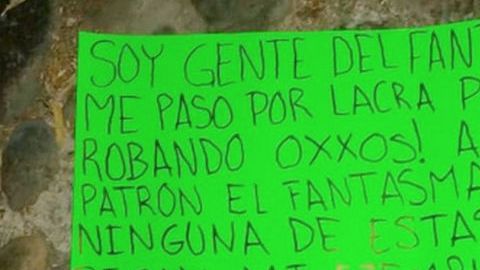 SOY GENTE DEL FANT
ME PASO POR LACRA P
ROBANDO OXXOS! A
PATRÓN EL FANTASMA
NINGUNA DE ESTAS